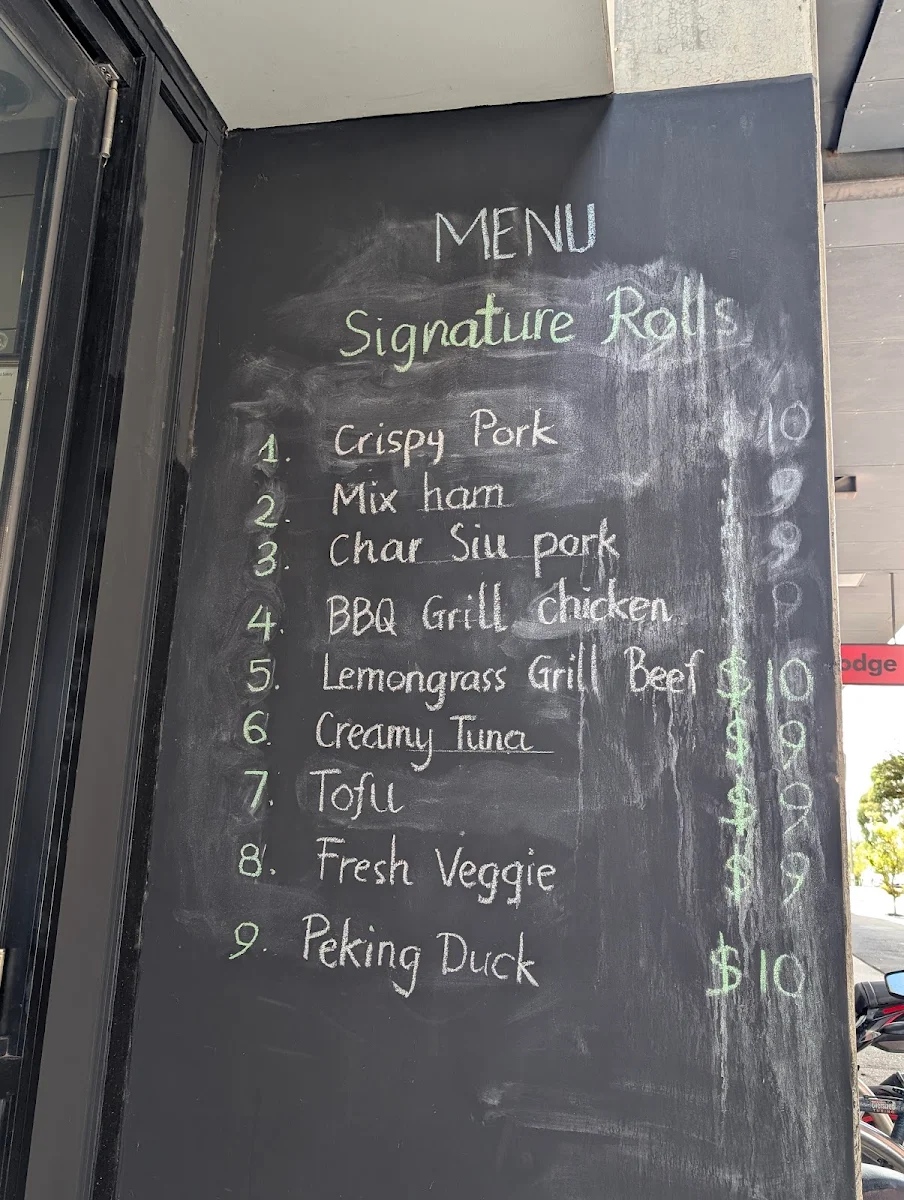 MENU
Signature Rolls
1. Crispy Pork 10
2. Mix ham 9
3. Char Siu pork 9
4. BBQ Grill chicken
5. Lemongrass Grill Beef $10
6. Creamy Tuna $9
7. Tofu $9
8. Fresh Veggie $9
9. Peking Duck $10
odge